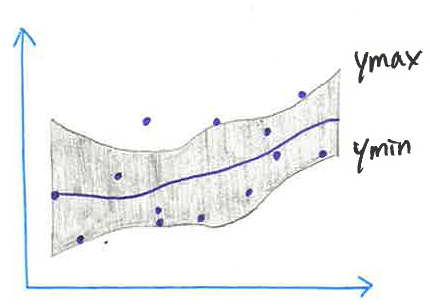 ymax
ymin